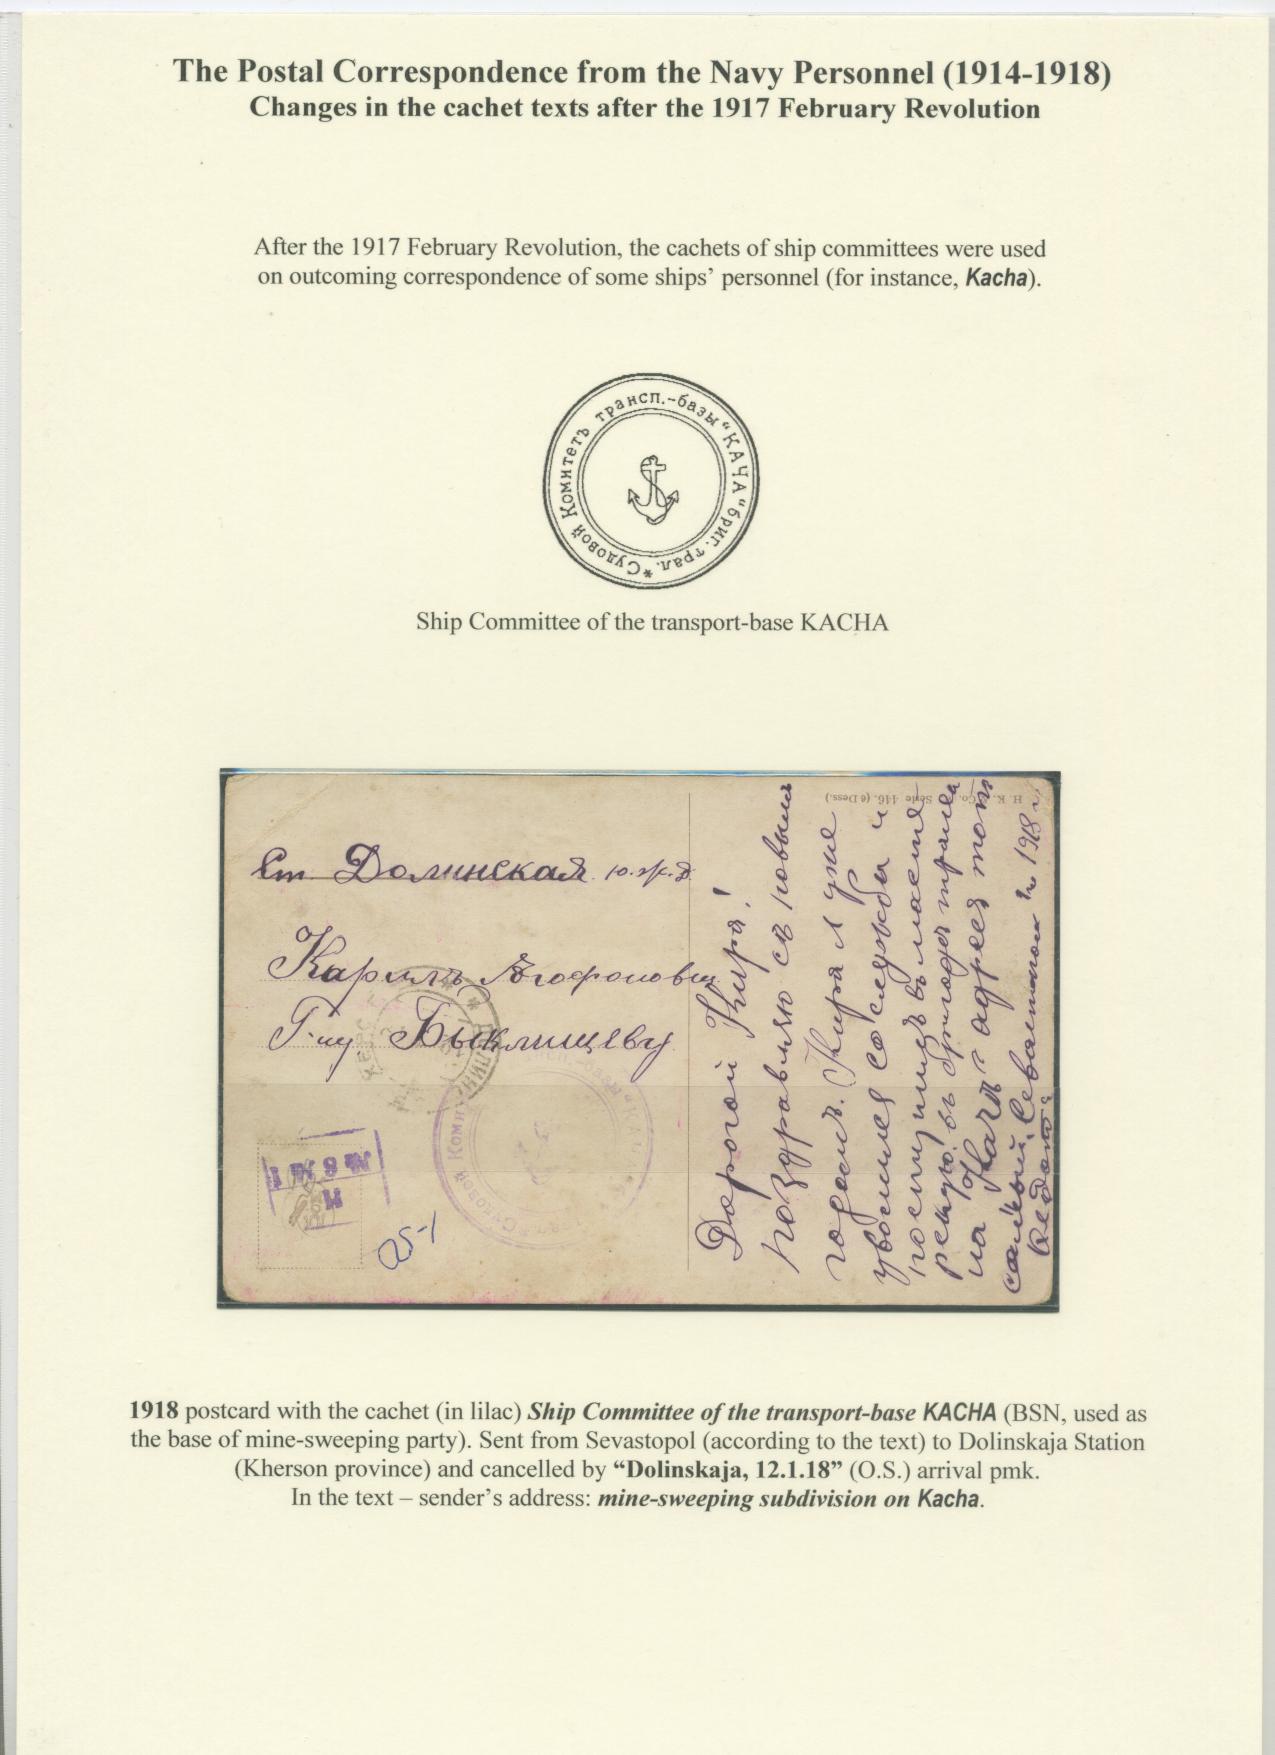 The Postal Correspondence from the Navy Personnel (1914-1918)
Changes in the cachet texts after the 1917 February Revolution
After the 1917 February Revolution, the cachets of ship committees were used
on outcoming correspondence of some ships’ personnel (for instance, Kacha).
*Судовой Комитетъ трансп.-базы “КАЧА” бриг. трал.
Ship Committee of the transport-base KACHA
Н. К. Co. Serie 116. (6 Dess.)
Ст. Долинская ю.ж.д.
Карилъ Агофоновичу
Г-ну Быклищеву
№ 6
05-1
Дорогой Кира!
поздравляю съ новымъ
годомъ. Кира я уже
уволился со службы и
поступилъ въ
въ бригаде траленія
на Качъ адресъ тотъ
самый. Севастополь 1918 г.
Федотъ
1918 postcard with the cachet (in lilac) Ship Committee of the transport-base KACHA (BSN, used as
the base of mine-sweeping party). Sent from Sevastopol (according to the text) to Dolinskaja Station
(Kherson province) and cancelled by “Dolinskaja, 12.1.18” (O.S.) arrival pmk.
In the text – sender’s address: mine-sweeping subdivision on Kacha.